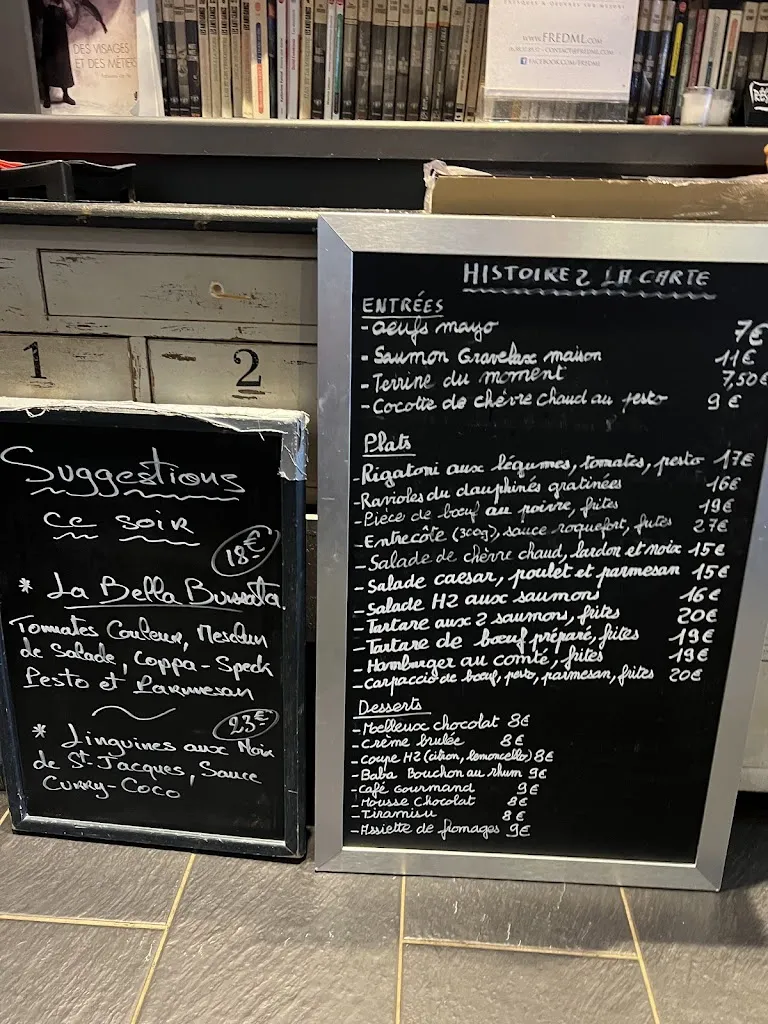 DES VISAGES
ET DES MÉTIERS
WWW.FREDML.COM
FACEBOOK.COM/FREDML
1
2
Suggestions
ce soir
18€
* La Bella Burrata
Tomates Couleur, Mesclun
de Salade, Coppa - Speck
Pesto et Parmesan
23€
* Linguines aux Noix
de St Jacques, Sauce
Curry-Coco
HISTOIRE 2 LA CARTE
ENTRÉES
- oeufs mayo 7€
- Saumon Gravelax maison 11€
- Terrine du moment 7,50€
- Cocotte de chèvre chaud au pesto 9€
Plats
- Rigatoni aux légumes, tomates, pesto 17€
- Ravioles du dauphinés gratinées 16€
- Pièce de bœuf au poivre, frites 19€
- Entrecôte (300g), sauce roquefort, frites 27€
- Salade de chèvre chaud, lardon et noix 15€
- Salade caesar, poulet et parmesan 15€
- Salade H2 aux saumons 16€
- Tartare aux 2 saumons, frites 20€
- Tartare de bœuf préparé, frites 19€
- Hamburger au comté, frites 19€
- Carpaccio de bœuf, pesto, parmesan, frites 20€
Desserts
- Moelleux chocolat 8€
- Crème brulée 8€
- Coupe H2 (citron, lemoncello) 8€
- Baba Bouchon au rhum 9€
- Café Gourmand 9€
- Mousse Chocolat 8€
- Tiramisu 8€
- Assiette de fromages 9€